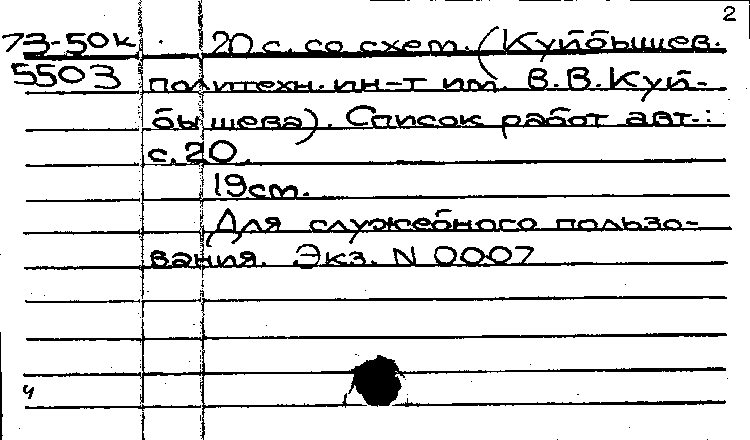 2
73-50к 20 с. со схем. (Куйбышев.
5503 политехн. ин-т им. В.В.Куй-
бышева). Список работ авт.:
с.20.
19см.
Для служебного пользо-
вания. Экз. N 0007
ч